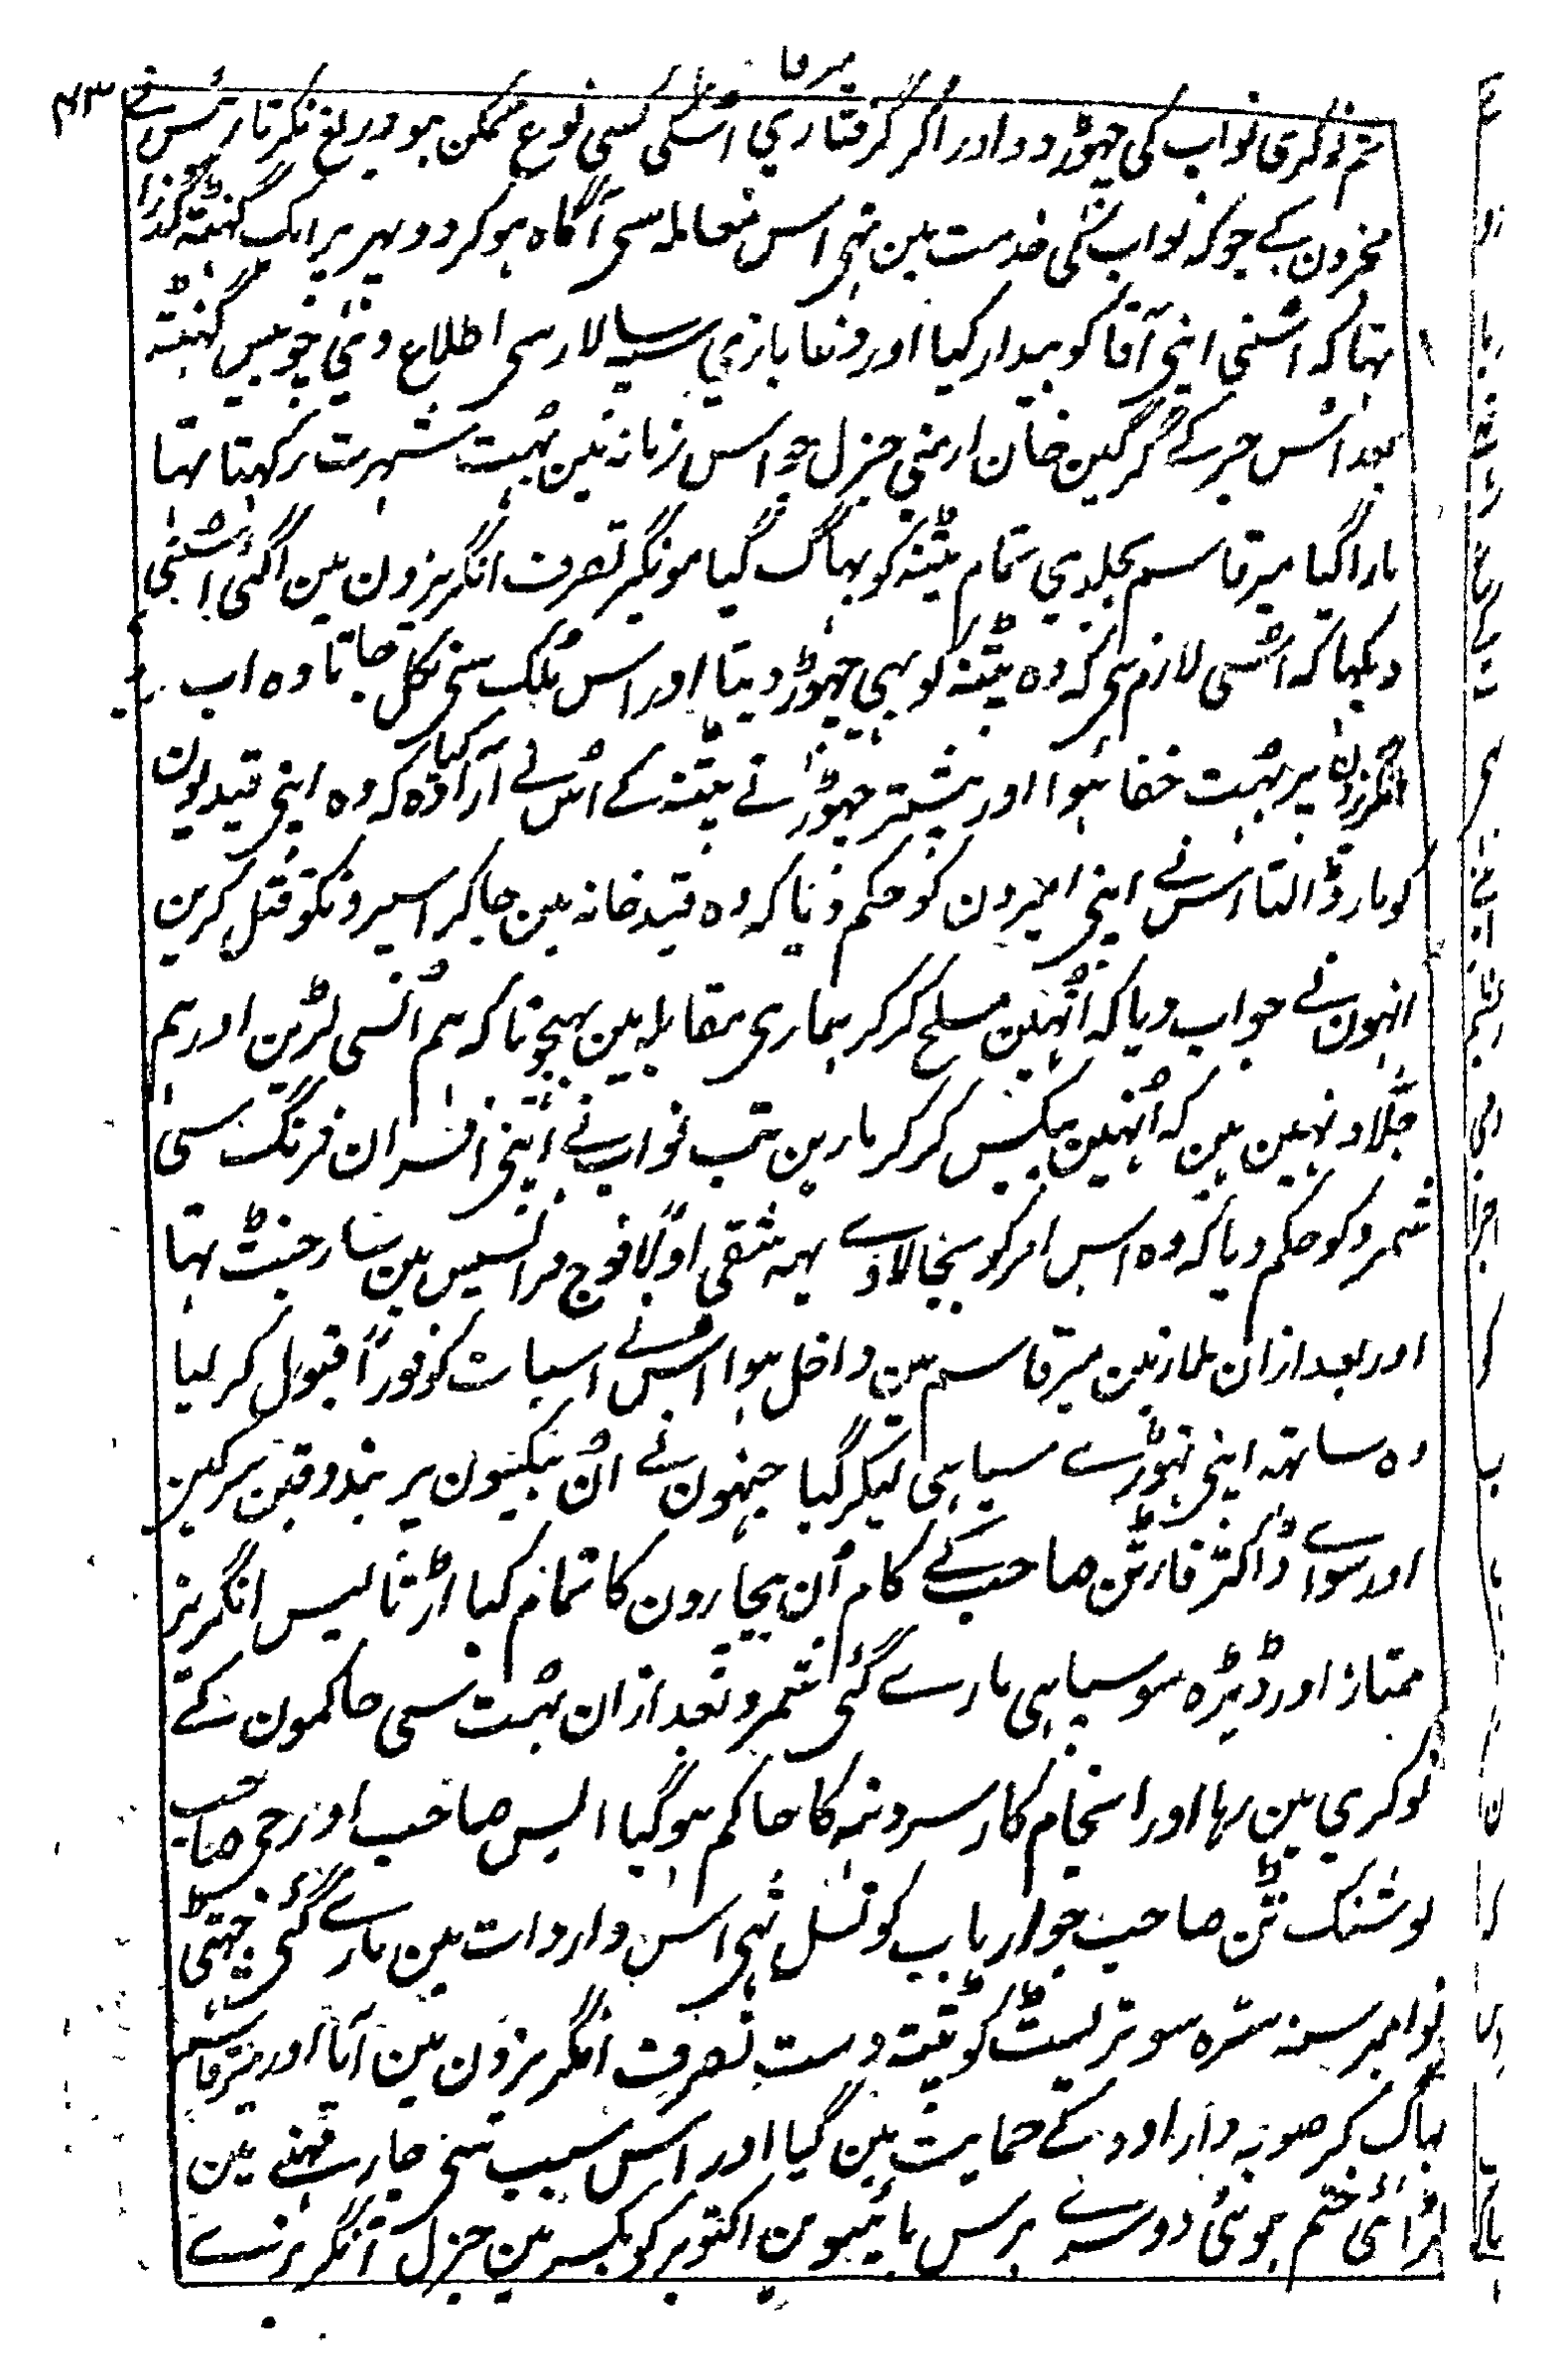 میر قا
۴۳
تم نوکری نواب کی چہوڑ دو اور اگر گرفتاری اسکی کسی نوع ممکن ہو دریغ نکرنا
مخبرون کے جو کہ نواب کی خدمت مین تہی اس معاملہ سی آگاہ ہو کر دوپہر پر ایک گہنٹہ گذرا
تہا کہ اسنی اپنی آقا کو بیدار کیا اور دغا بازی سپہ سالار سی اطلاع دی چوبیس گہنٹہ
بعد اس خبر کے گرگین خان ارمنی جنرل جو اس زمانہ مین بہت شہرت رکہتا تہا
مارا گیا میر قاسم بجلدی تمام پٹنہ کو بہاگ گیا مونگیر تصرف انگریزون مین اگئی اسنی
دیکہا کہ اسی لازم ہی کہ وہ پٹنہ کو بہی چہوڑ دیتا اور اس ملک سی نکل جاتا وہ اب
انگریزون پر بہت خفا ہوا اور پیشتر چہوڑنے پٹنہ کے اس نے ارادہ کیا کہ وہ اپنی قیدیون
کو مار ڈالتا اس نے اپنی امیرون کو حکم دیا کہ وہ قید خانہ مین جا کر اسیرونکو قتل کرین
انہون نے جواب دیا کہ انہین مسلح کر کر ہماری مقابلہ مین بہیجو تا کہ ہم انسی لڑین اور ہم
جلاد نہین ہین کہ انہین بیکس کر کر مارین تب نواب نے اپنی افسران فرنگ سی
شمرو کو حکم دیا کہ وہ اس امر کو بجا لاوے یہہ شقی اولا فوج فرانسیس مین سارجنٹ تہا
اور بعد ازان ملازمین میر قاسم مین داخل ہوا اس نے اسبات کو فوراً قبول کر لیا
وہ ساتہہ اپنی تہوڑے سپاہی لیکر گیا جنہون نے ان بیکسون پر بندوقین سر کین
اور سواے ڈاکتر فارٹن صاحب کے کام ان بیچارون کا تمام کیا اڑتالیس انگریز
ممتاز اور ڈیڑہ سو سپاہی مارے گئی شمرو بعد ازان بہت سی حاکمون کے
نوکری مین رہا اور انجام کار سردہنہ کا حاکم ہو گیا الیس صاحب اور حی صاحب
لوشنگ ٹن صاحب جو ارباب کونسل تہی اس واردات مین مارے گئی چہٹی
نوامبر سنہ سترہ سو تریسٹ کو پٹنہ دست تصرف انگریزون مین آیا اور میر قاسم
بہاگ کر صوبہ دار اودہ کے حمایت مین گیا اور اس سبب سی چار مہنے مین
لڑائی ختم ہوئی دوسرے برس بائیسوین اکتوبر کو بکسر مین جنرل انگریزنے